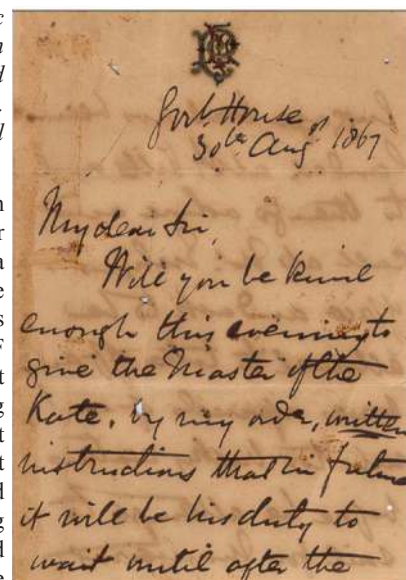 Govt House
30th Augt 1867
My dear Sir,
Will you be kind
enough this evening to
give the Master of the
Kate, by my order, written
instructions that in future
it will be his duty to
wait until after the